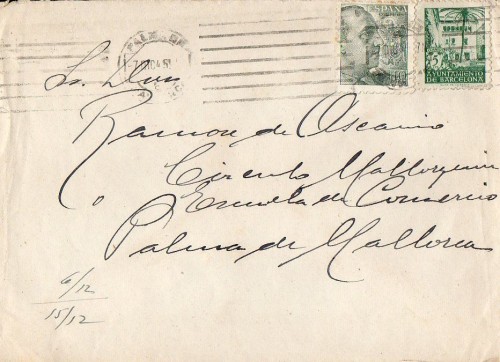 ESPAÑA
AYUNTAMIENTO
DE BARCELONA
5
Sr. Don
Ramon de Ascanio
Circulo Mallorquin
o Escuela de Comercio
Palma de Mallorca
6/12
15/12